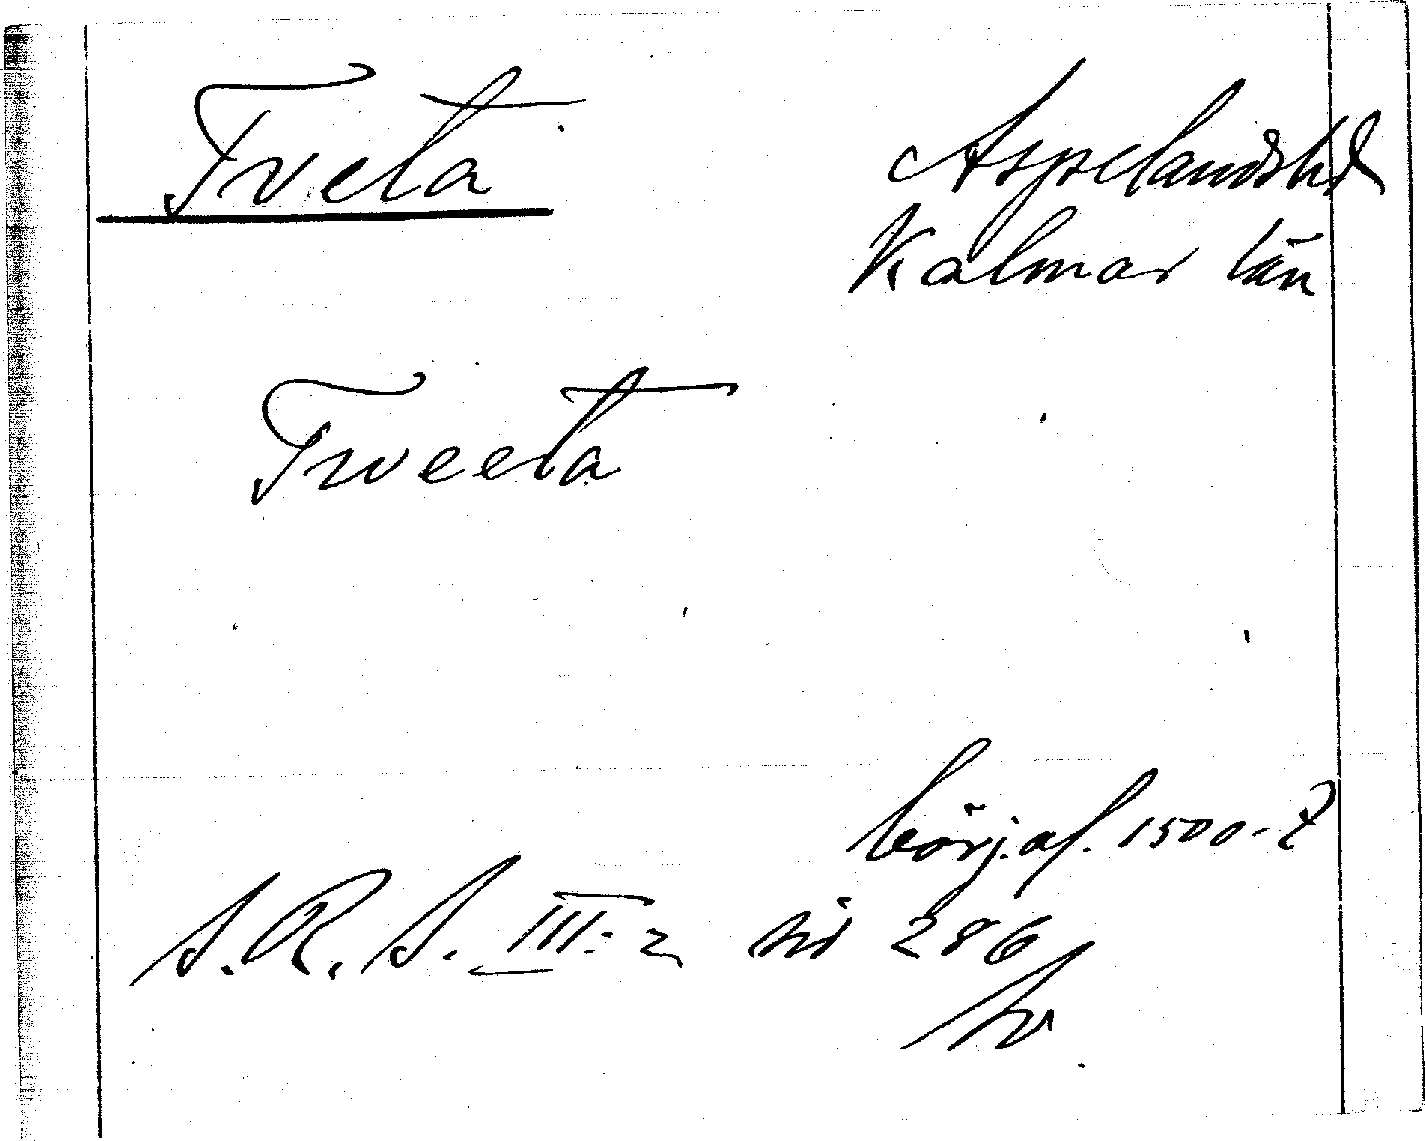 Tveta
Aspelands hd
Kalmar län
Tweeta
börj. af 1500-t
S.R.S. III:2 sid 286